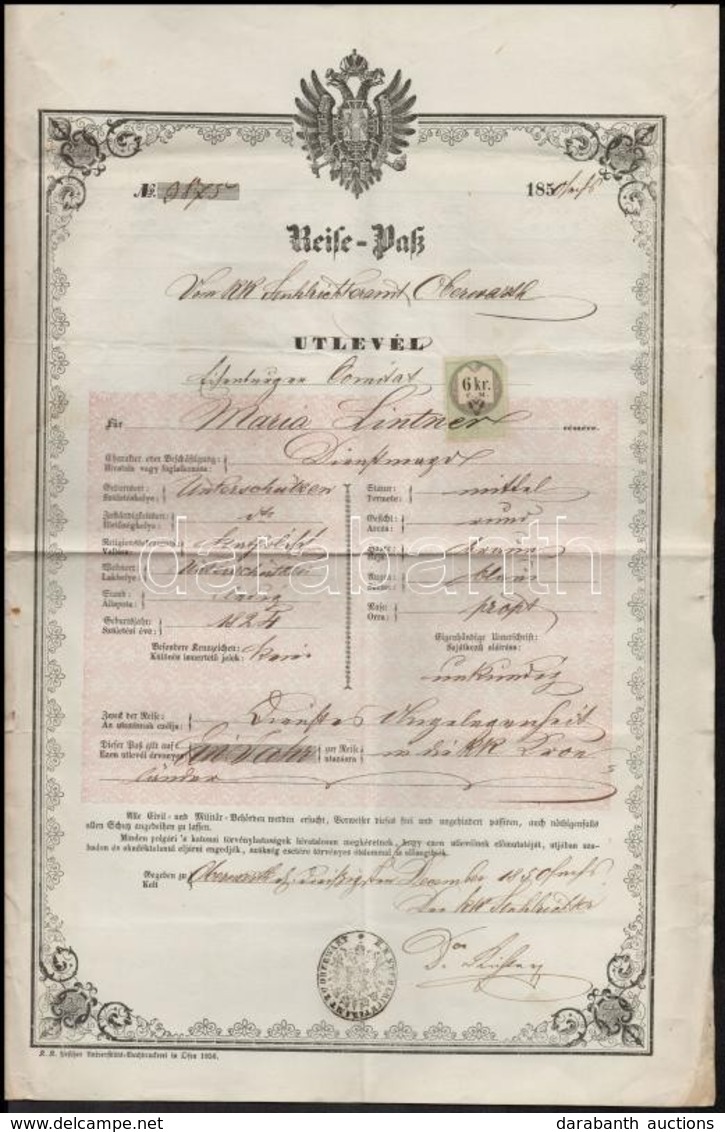 № 9875
185
Reise-Paß
Vom KK Stuhlrichteramt Oberwarth
UTLEVÉL
Eisenburger Comitat
6 kr.
C. M.
Für Maria Lintner részére.
Charakter oder Beschäftigung:
Hivatala vagy foglalkozása: Dienstmagd
Geburtsort: Unterschützen Statur: mittel
Születéshelye: Termete:
Zuständigkeitsort: dto Gesicht: rund
Illetőséghelye: Arcza:
Religionsbekenntniß: Katholisch Haare: braun
Vallása: Haja:
Wohnort: Unterschützen Augen: blau
Lakhelye: Szemei:
Stand: ledig Nase: propt
Állapota: Orra:
Geburtsjahr: 1824 Eigenhändige Unterschrift:
Születési éve: Sajátkezű aláírása:
Besondere Kennzeichen: keine
Különös ismertető jelek:
unkundig
Zweck der Reise: Dienstes Angelegenheit
Az utazásnak czélja:
Dieser Paß gilt auf ein Jahr zur Reise in die KK Kron
Ezen utlevél érvényes utazásra
länder
Alle Civil- und Militär-Behörden werden ersucht, Vorweiser dieses frei und ungehindert passiren, auch nöthigenfalls
allen Schutz angedeihen zu lassen.
Minden polgári 's katonai törvényhatóságok hivatalosan megkéretnek, hogy ezen utlevélnek előmutatóját, utjában sza-
badon és akadéktalanul eljárni engedjék, szükség esetére törvényes oltalommal is elősegitsék.
Gegeben zu Oberwarth den December
Kelt
Der KK Stuhlrichter
K. K. Ofner Universitäts-Buchdruckerei in Ofen 1856.
darabanth
darabanth auctions